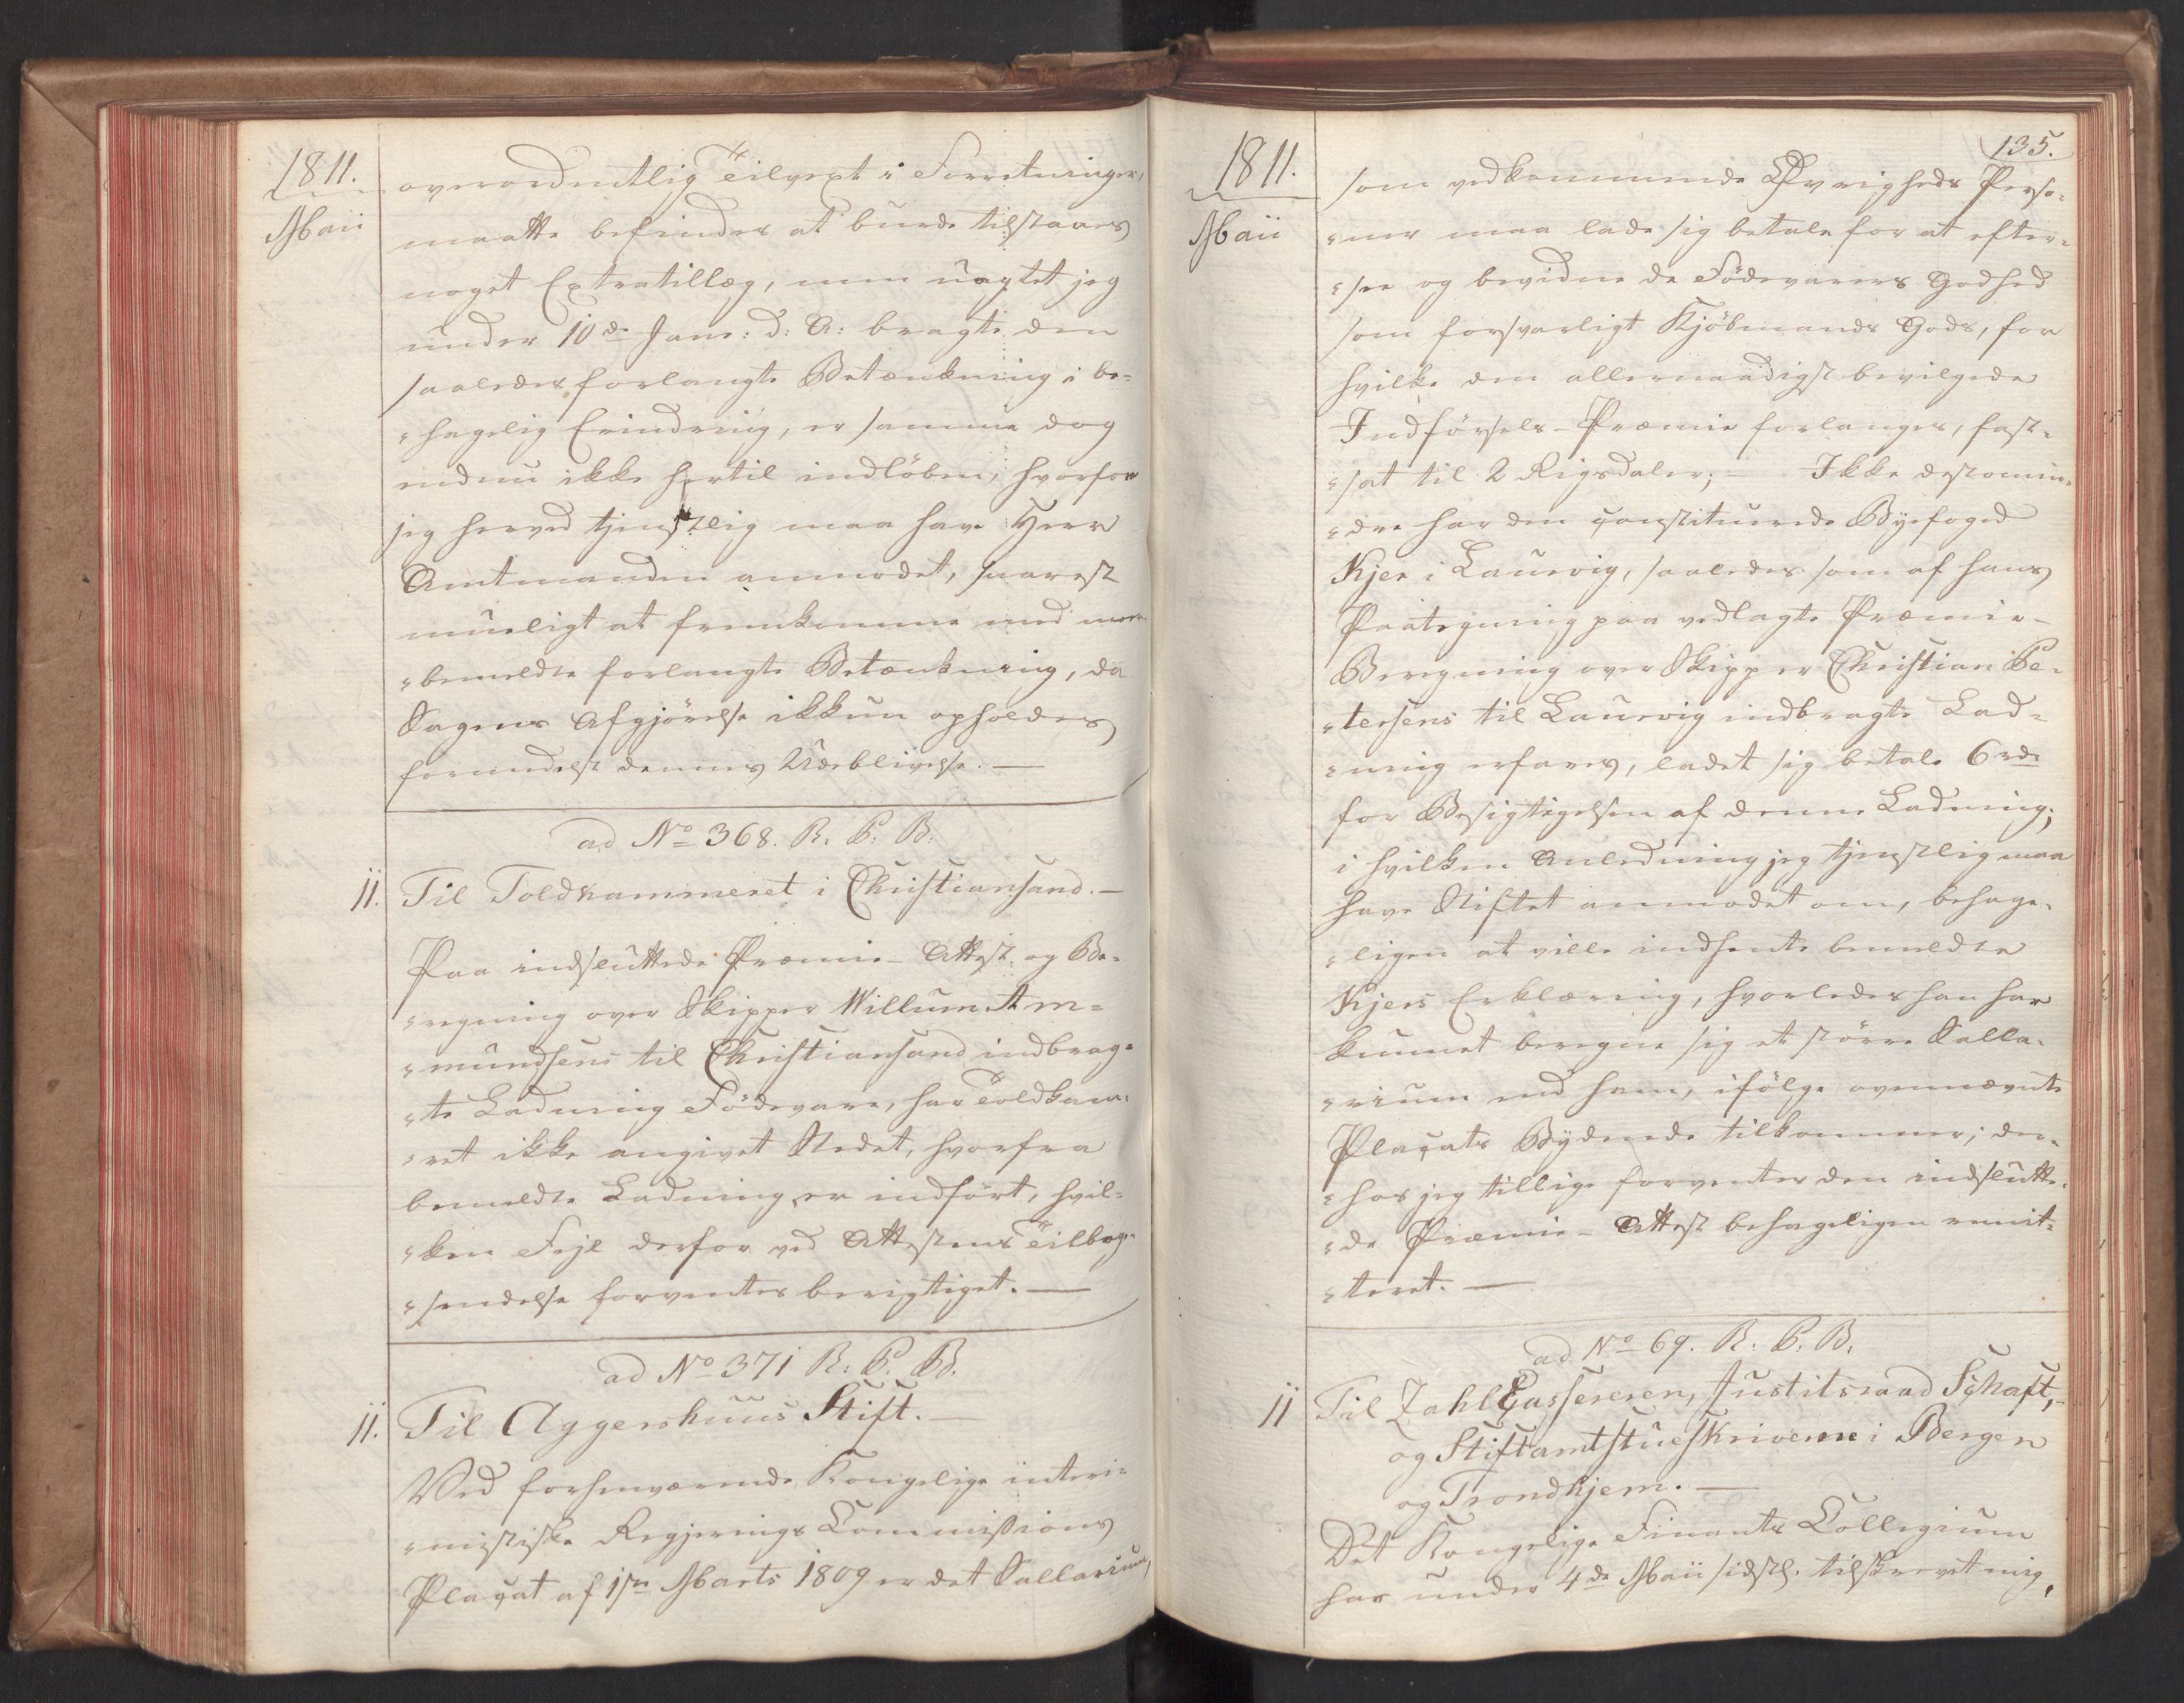 1811.
Maii
overordentlig Tilvext i Forretninger,
maatte befindes at burde tilstaaes
noget Extratillæg, men uagtet jeg
under 10de Janr: d: A: bragte den
saaledes forlangte Betænkning i be-
„hagelig Erindring, er samme dog
endnu ikke hertil indløben, hvorfor
jeg herved tjenstlig maa have Herr
Amtmanden anmodet, snarest
mueligt at fremkomme med meer-
„bemeldte forlangte Betænkning, da
Sagens Afgjørelse ikkun opholdes
formedelst dennes Udeblivelse. —
ad No 368. R. P. B.
11. Til Toldkammeret i Christiansand. —
Paa indsluttede Præmie-Attest og Be-
„regning over Skipper Willum Am-
„mundsens til Christiansand indbrag-
„te Ladning Fødevare, har Toldkam-
„ret ikke angivet Stedet, hvorfra
bemeldte Ladning er indført, hvil-
„ken Fejl derfor ved Attestens Tilbage-
„sendelse forventes berigtiget. —
ad No 371 R. P. B.
11. Til Aggershuus Stift. —
Ved forhenværende Kongelige interi-
„mistiske Regjerings Commissions
Placat af 1ste Marts 1809 er det Sallarium,
135.
1811.
Maii
som vedkommende Øvrigheds Perso-
„ner maa lade sig betale for at efter-
„see og bevidne de Fødevarers Godhed
som forsvarligt Kjøbmands Gods, for
hvilke den allernaadigst bevilgede
Indførsels-Præmie forlanges, fast-
„sat til 2 Rigsdaler; — Ikke destomin-
„dre har den constituerede Byefoged
Kjer i Laurvig, saaledes som af hans
Paategning paa vedlagte Præmie-
Beregning over Skipper Christian Pe-
„tersens til Laurvig indbragte Lad-
„ning erfares, ladet sig betale 6 rd
for Besigtigelsen af denne Ladning;
i hvilken Anledning jeg tjenstlig maa
have Stiftet anmodet om, behage-
„ligen at ville indhente bemeldte
Kjers Erklæring, hvorledes han har
kunnet beregne sig et større Salla-
„rium end ham, ifølge ovennævnte
Placats Bydende tilkommer; der-
„hos jeg tillige forventer den indslutte-
„de Præmie-Attest behageligen remit-
„teret. —
ad No 69. R. P. B.
11 Til Zahlcasserernen, Justitsraad Schaft,
og Stiftamtstueskriverne i Bergen
og Trondhjem. —
Det Kongelige Finants Collegium
har under 4de Maii sidstl. tilskrevet mig,